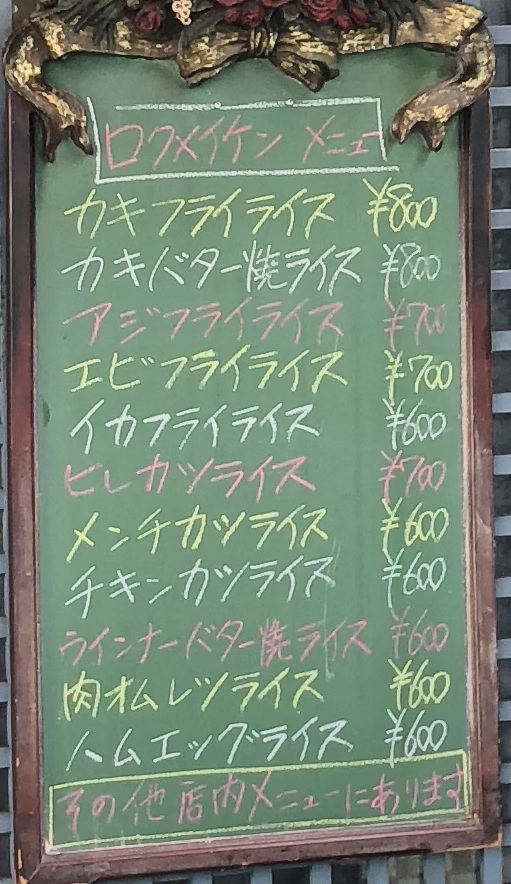 ロクメイケン メニュー
カキフライライス ¥800
カキバター焼ライス ¥800
アジフライライス ¥700
エビフライライス ¥700
イカフライライス ¥600
ヒレカツライス ¥700
メンチカツライス ¥600
チキンカツライス ¥600
ウインナーバター焼ライス ¥600
肉オムレツライス ¥600
ハムエッグライス ¥600
その他店内メニューにあります